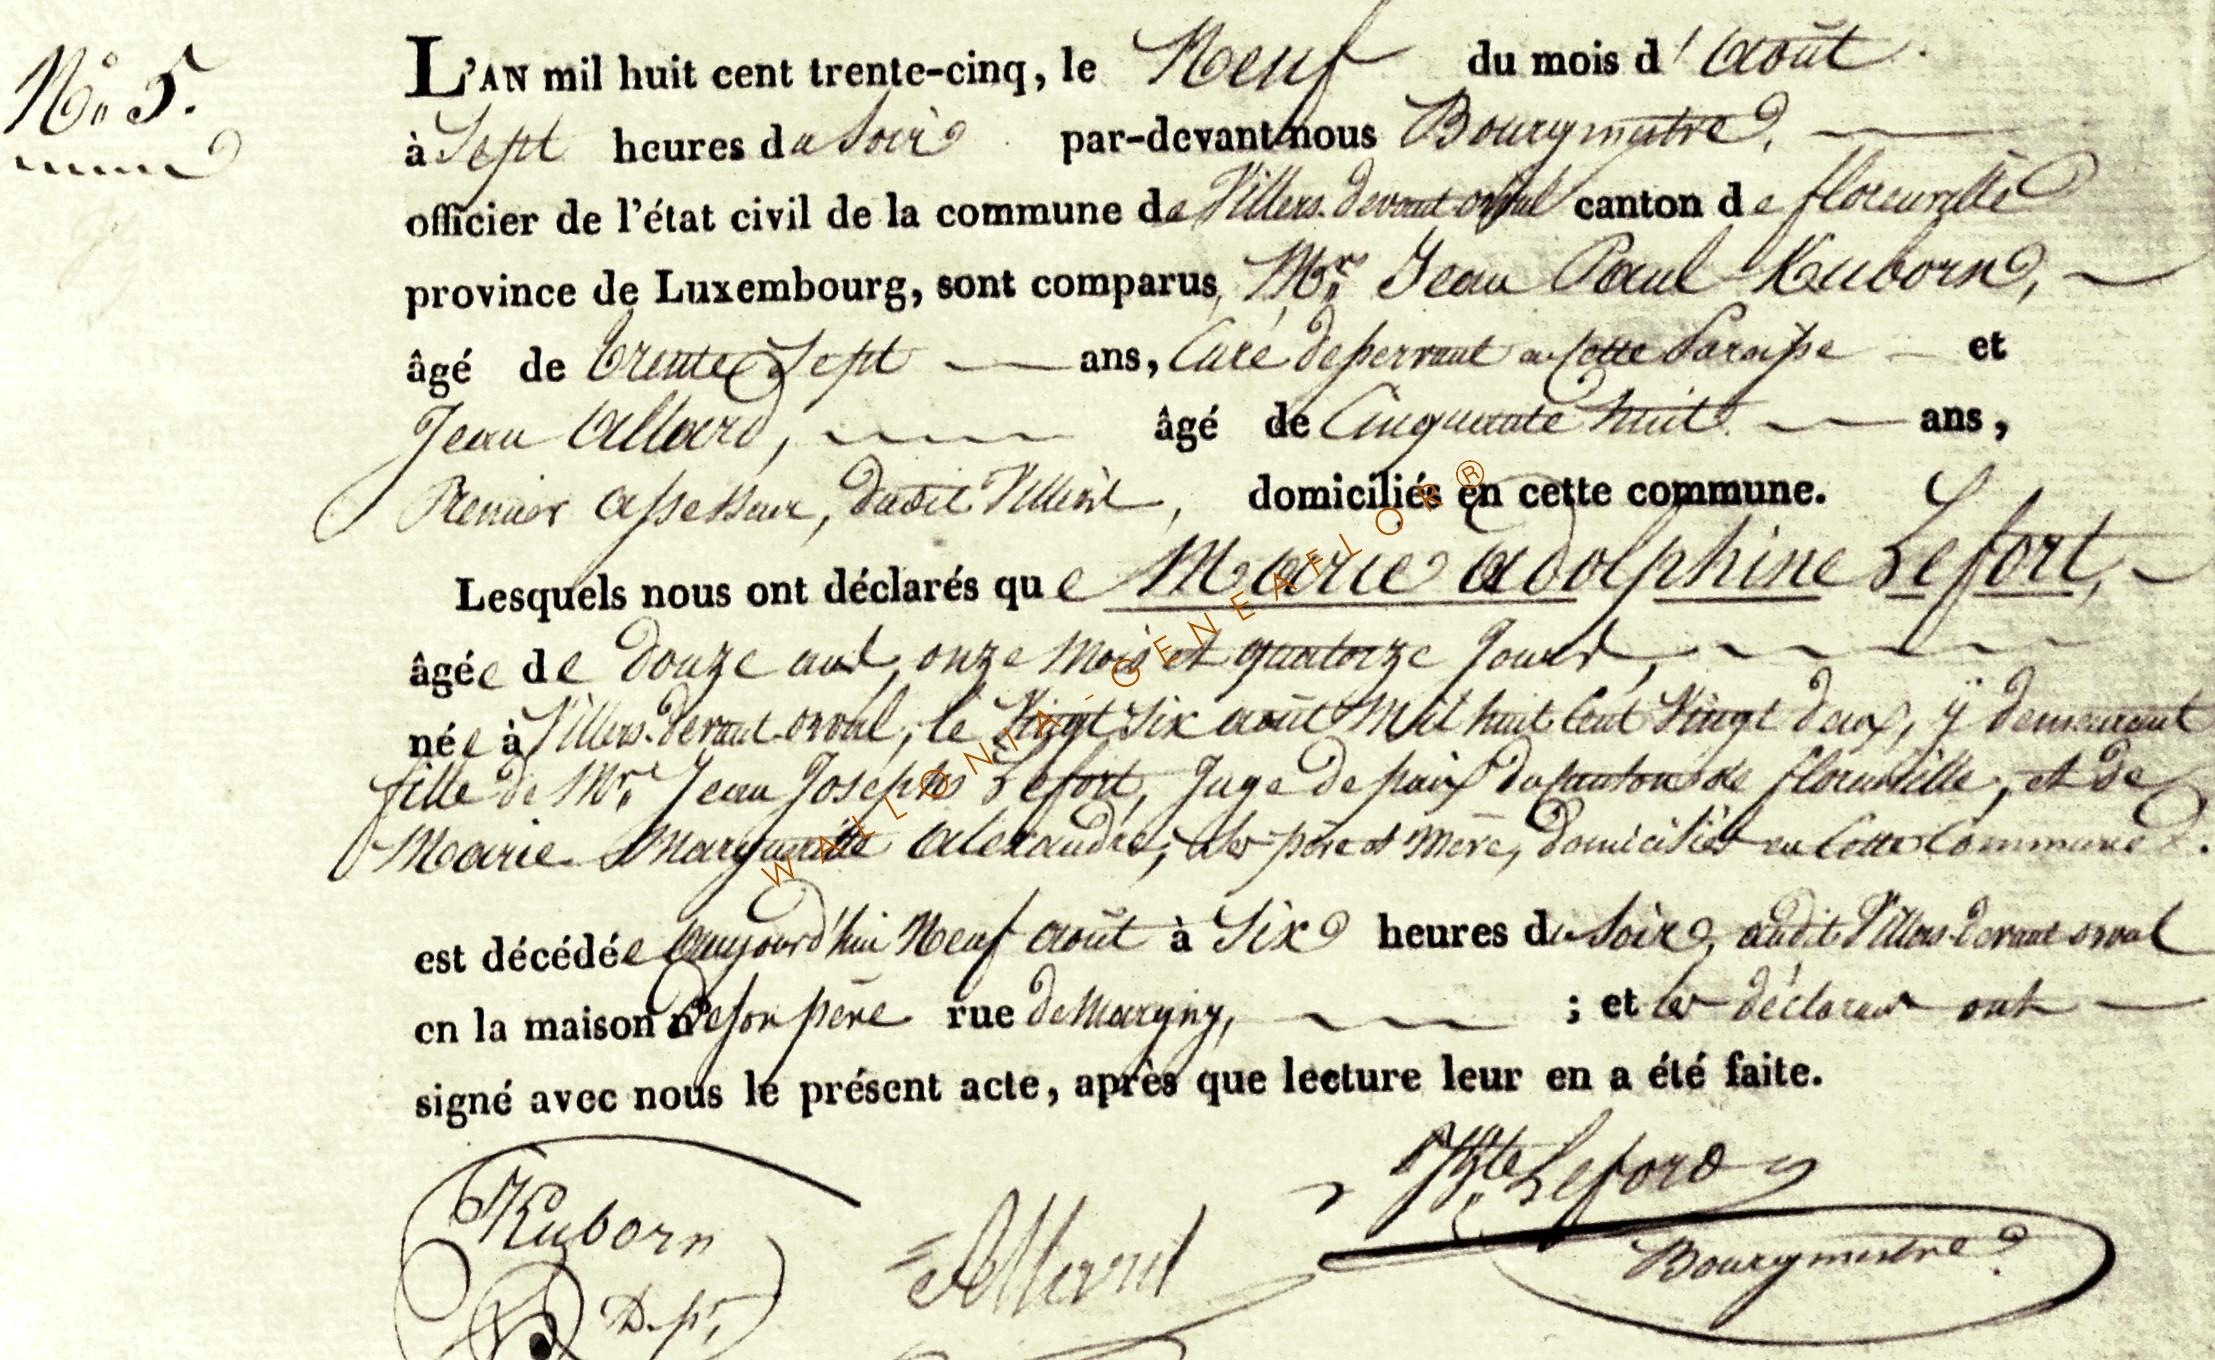 N.° 5.
L'AN mil huit cent trente-cinq, le Neuf du mois d'août.
à Sept heures du Soir par-devant nous Bourgmestre,
officier de l'état civil de la commune de Villers-devant-orval canton de florenville
province de Luxembourg, sont comparus, Mr. Jean Paul Kuborn,
âgé de trente Sept ans, Curé desservant en Cette Paroisse et
Jean Allard, âgé de Cinquante huit ans,
Premier assesseur, dudit Villers, domiciliés en cette commune.
Lesquels nous ont déclarés que Marie adolphine Lefort,
âgée de douze ans, onze Mois et quatorze Jours,
née à Villers-devant-orval, le Vingt Six août Mil huit Cent Vingt deux, y demeurant
fille de Mr. Jean Joseph Lefort, Juge de paix du Canton de florenville, et de
Marie Marguerite Alexandre, ses père et Mère, domiciliés en Cette Commune.
est décédée aujourd'hui Neuf août à Six heures du Soir, audit Villers-devant orval
en la maison n° de son père rue de Margny, ; et les déclarans ont
signé avec nous le présent acte, après que lecture leur en a été faite.
Kuborn
Allard
Leford
Bourgmestre
WALLONIA-GENEAFLOR®